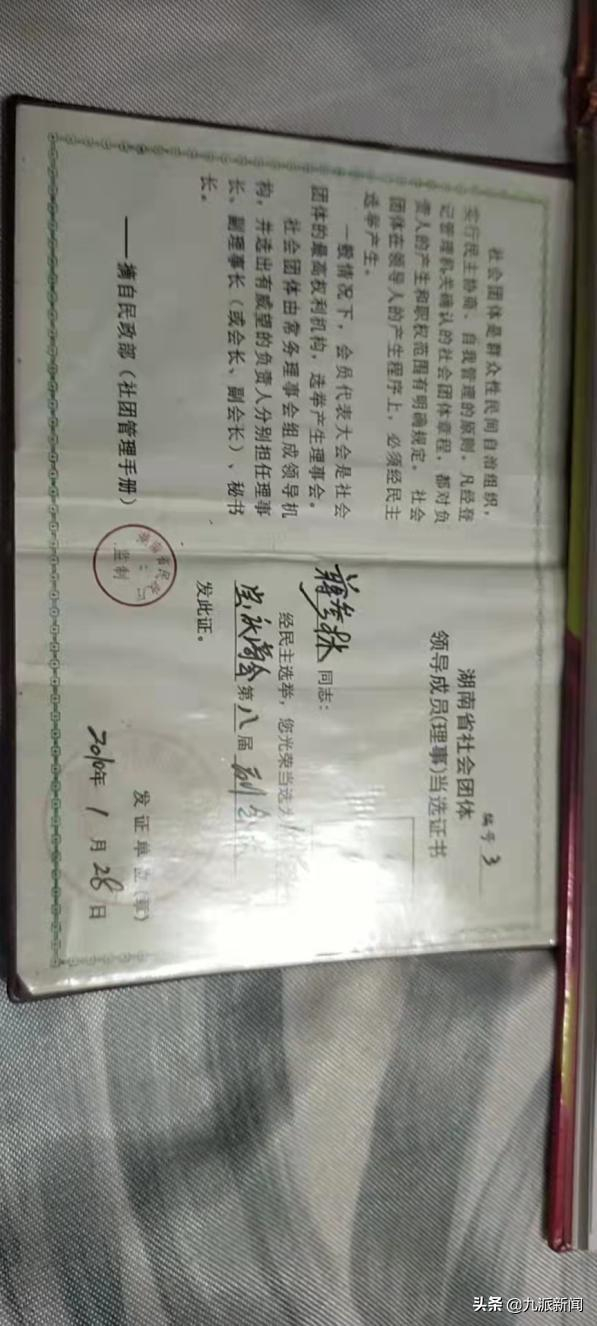 社会团体是群众性民间自治组织，
实行民主协商、自我管理的原则。凡经登
记管理机关确认的社会团体章程，都对负
责人的产生和职权范围有明确规定。社会
团体在领导人的产生程序上，必须经民主
选举产生。
一般情况下，会员代表大会是社会
团体的最高权利机构，选举产生理事会。
社会团体由常务理事会组成领导机
构，并选出有威望的负责人分别担任理事
长、副理事长（或会长、副会长）、秘书
长。
——摘自民政部（社团管理手册）
监制
编号 3
湖南省社会团体
领导成员(理事)当选证书
同志：
经民主选举，您光荣当选为
第八届副会
发此证。
发证单位(章)
2010年1月28日
头条 @九派新闻